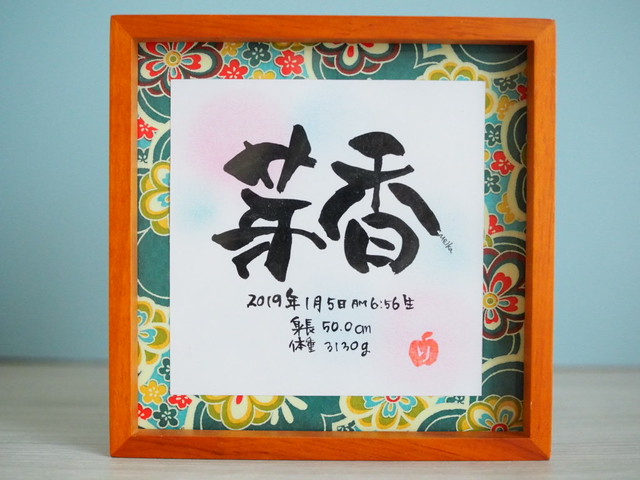 芽香
Meika
2019年1月5日 AM 6:56 生
身長 50.0cm
体重 3130g